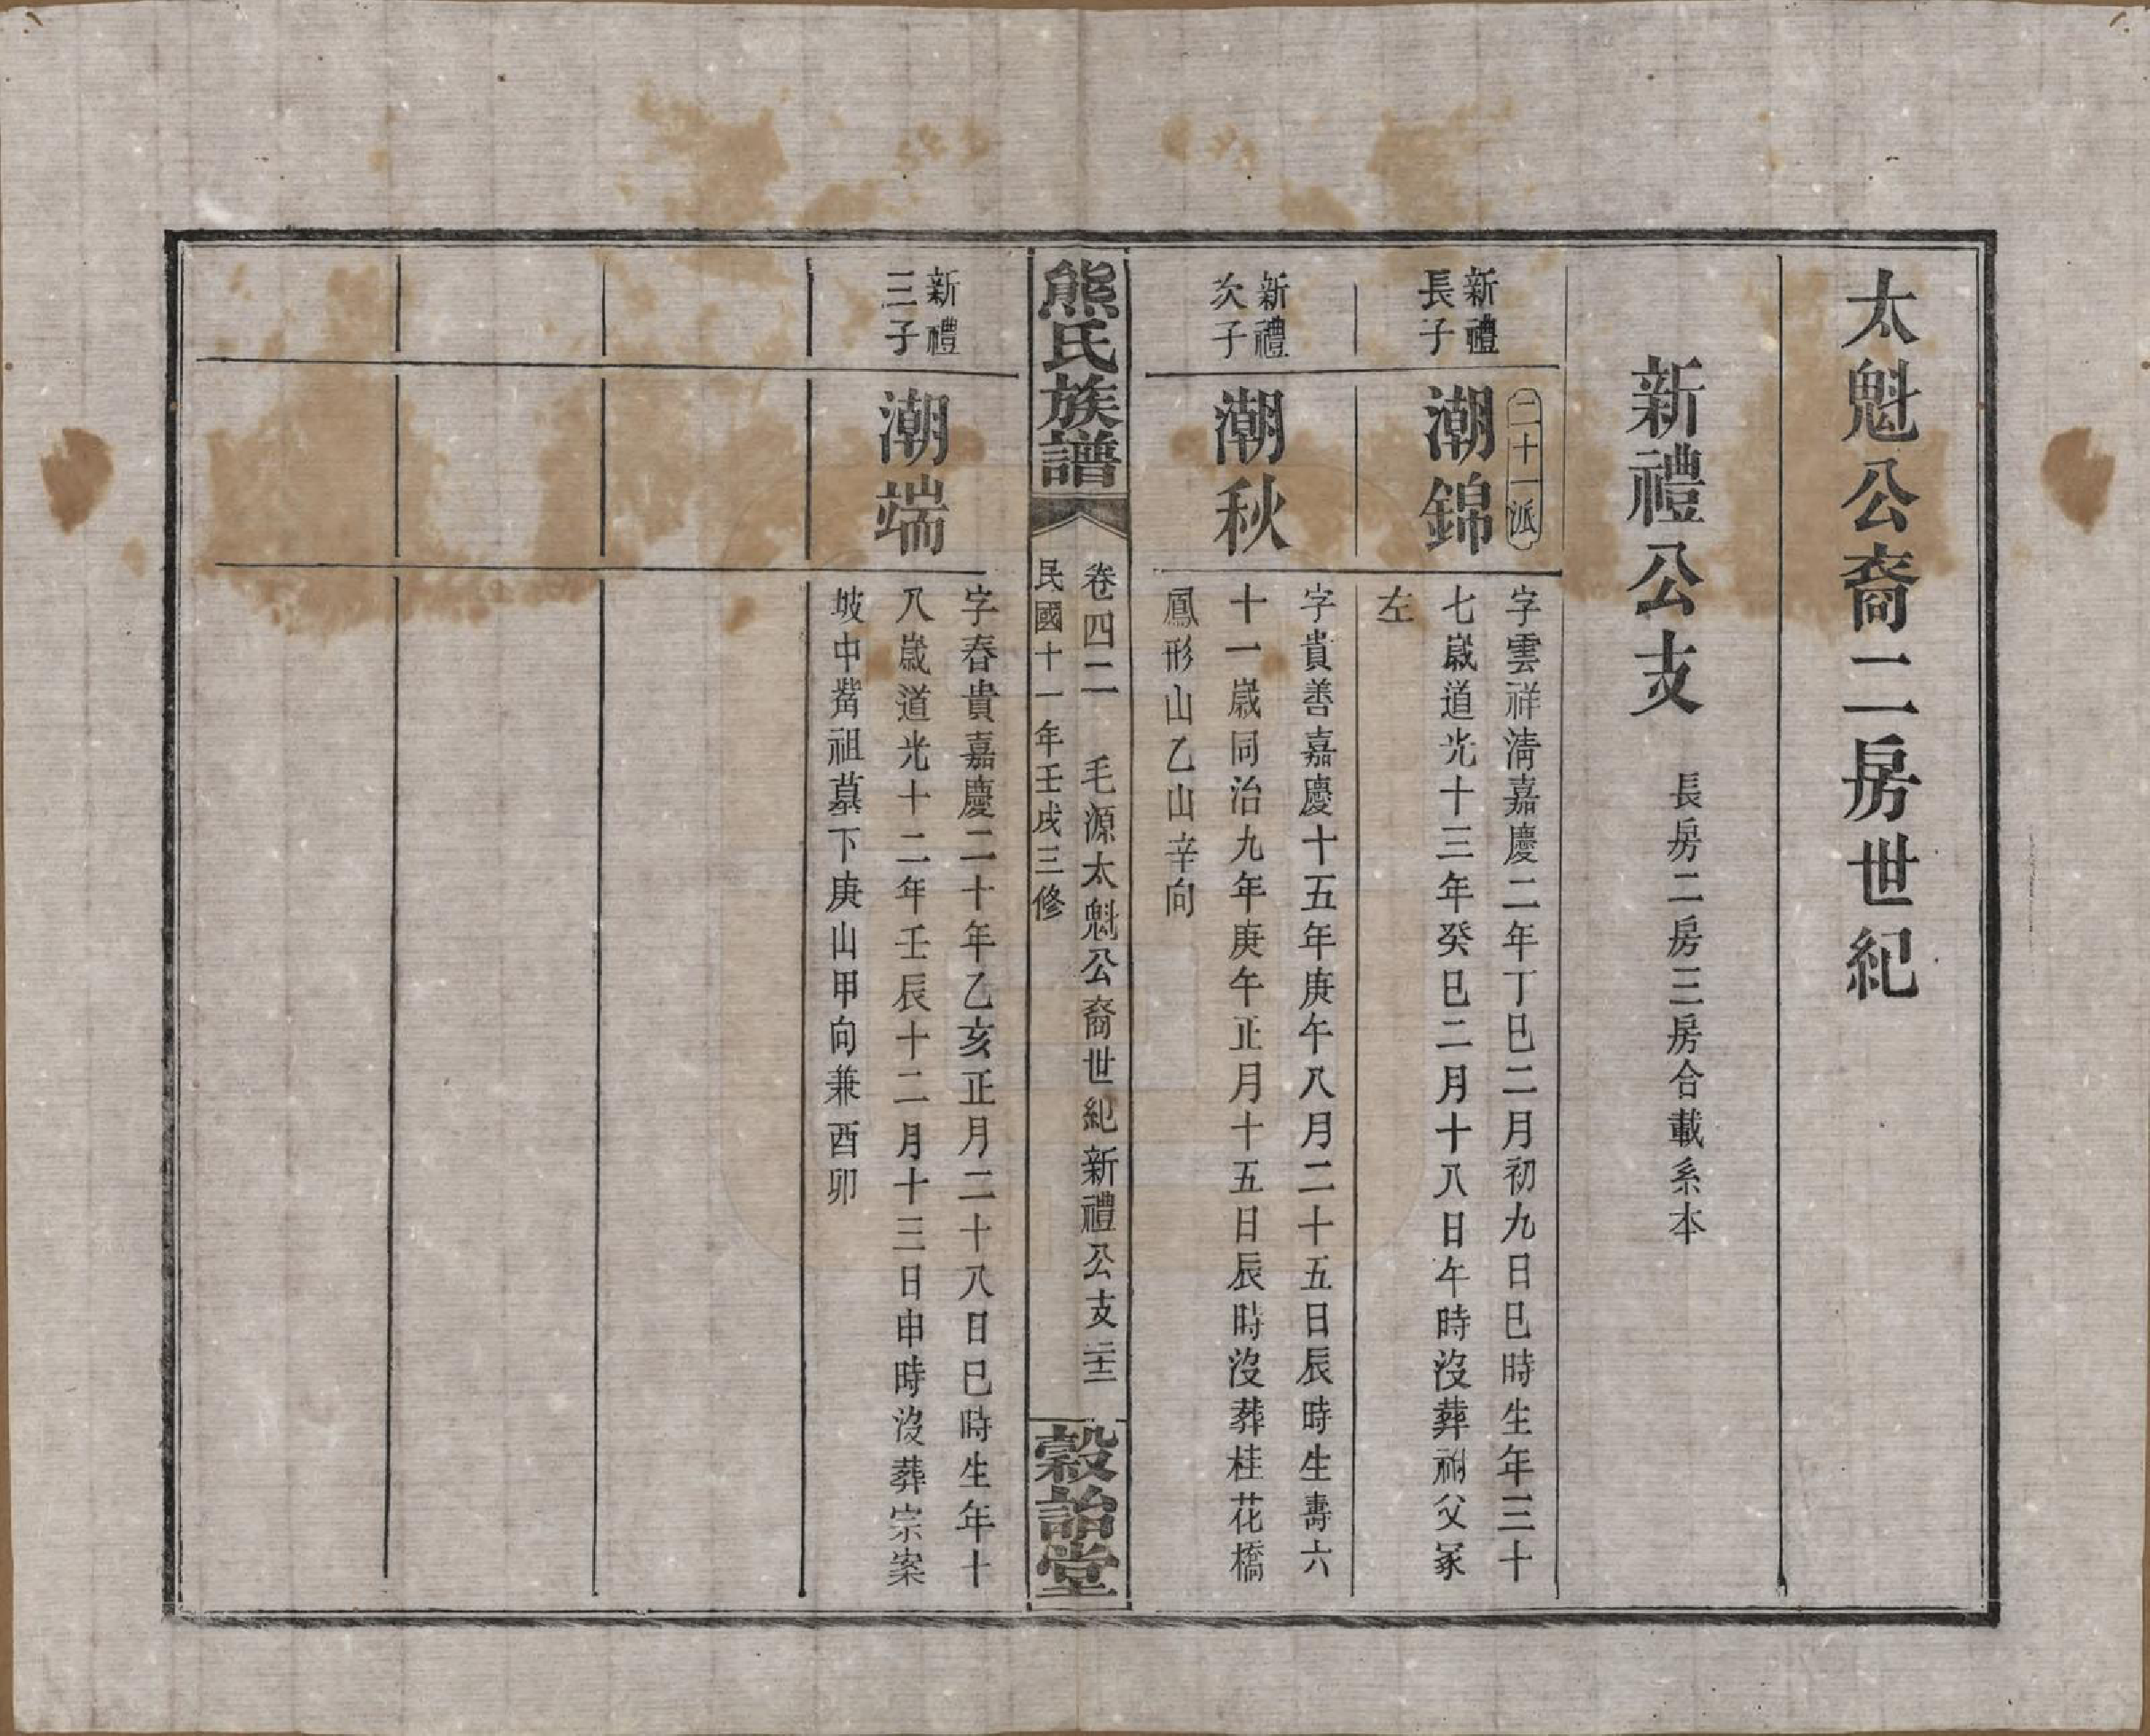 太魁公裔二房世紀
新禮公支
長房二房三房合載系本
二十一派
新禮
長子
潮錦
字雲祥淸嘉慶二年丁巳二月初九日巳時生年三十
七歲道光十三年癸巳二月十八日午時沒葬祔父冢
左
新禮
次子
潮秋
字貴善嘉慶十五年庚午八月二十五日辰時生壽六
十一歲同治九年庚午正月十五日辰時沒葬桂花橋
鳳形山乙山辛向
熊氏族譜
卷四二 毛源太魁公裔世紀新禮公支
民國十一年壬戌三修
穀詒堂
新禮
三子
潮端
字春貴嘉慶二十年乙亥正月二十八日巳時生年十
八歲道光十二年壬辰十二月十三日申時沒葬宗案
坡中觜祖墓下庚山甲向兼酉卯